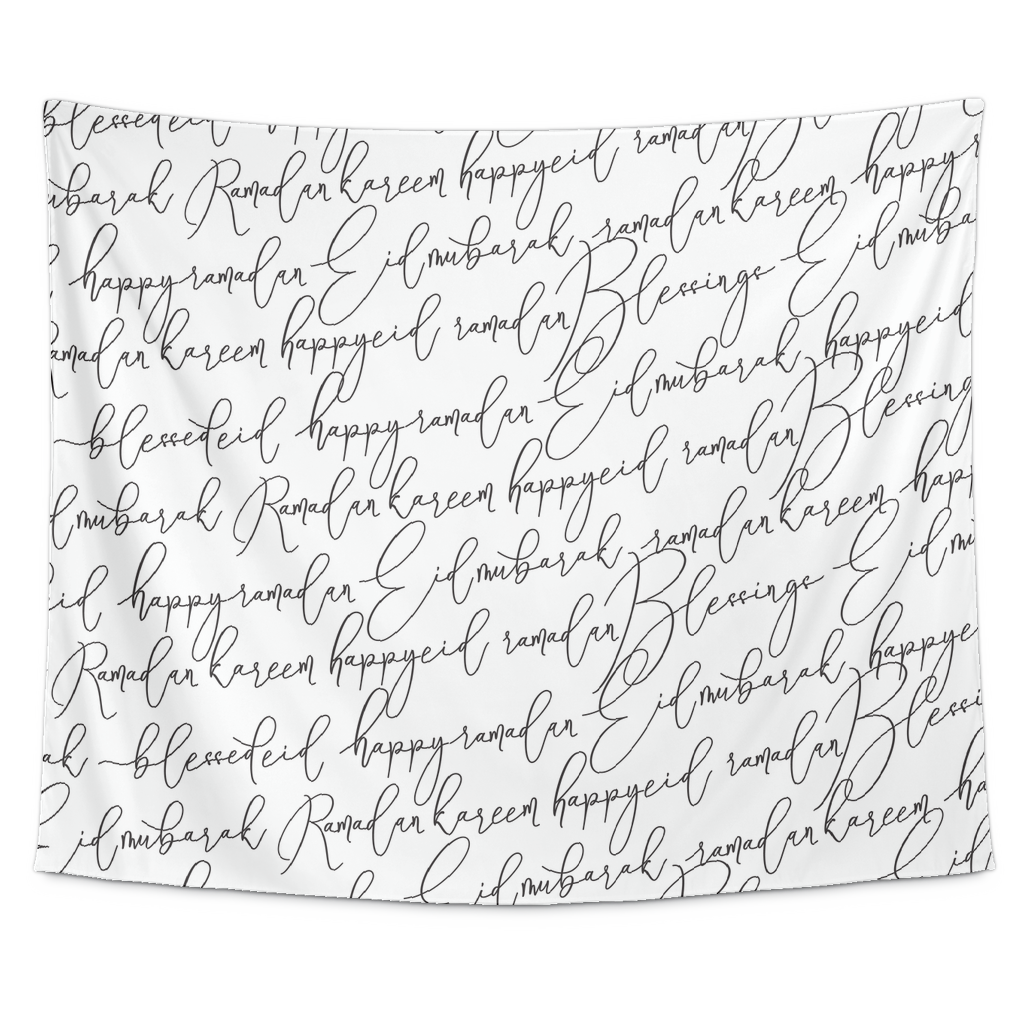 blessedeid happy
mubarak Ramadan kareem happyeid ramadan B
happyramadan Eid mubarak ramadan kareem happy
ramadan kareem happyeid ramadan Blessings Eid muba
blessedeid happyramadan Eid mubarak happyeid
d mubarak Ramadan kareem happyeid ramadan Blessing
eid happyramadan Eid mubarak ramadan kareem happ
Ramadan kareem happyeid ramadan Blessings Eid mu
ak blessedeid happyramadan Eid mubarak happye
Eid mubarak Ramadan kareem happyeid ramadan Blessi
Eid mubarak ramadan kareem ha
Eid